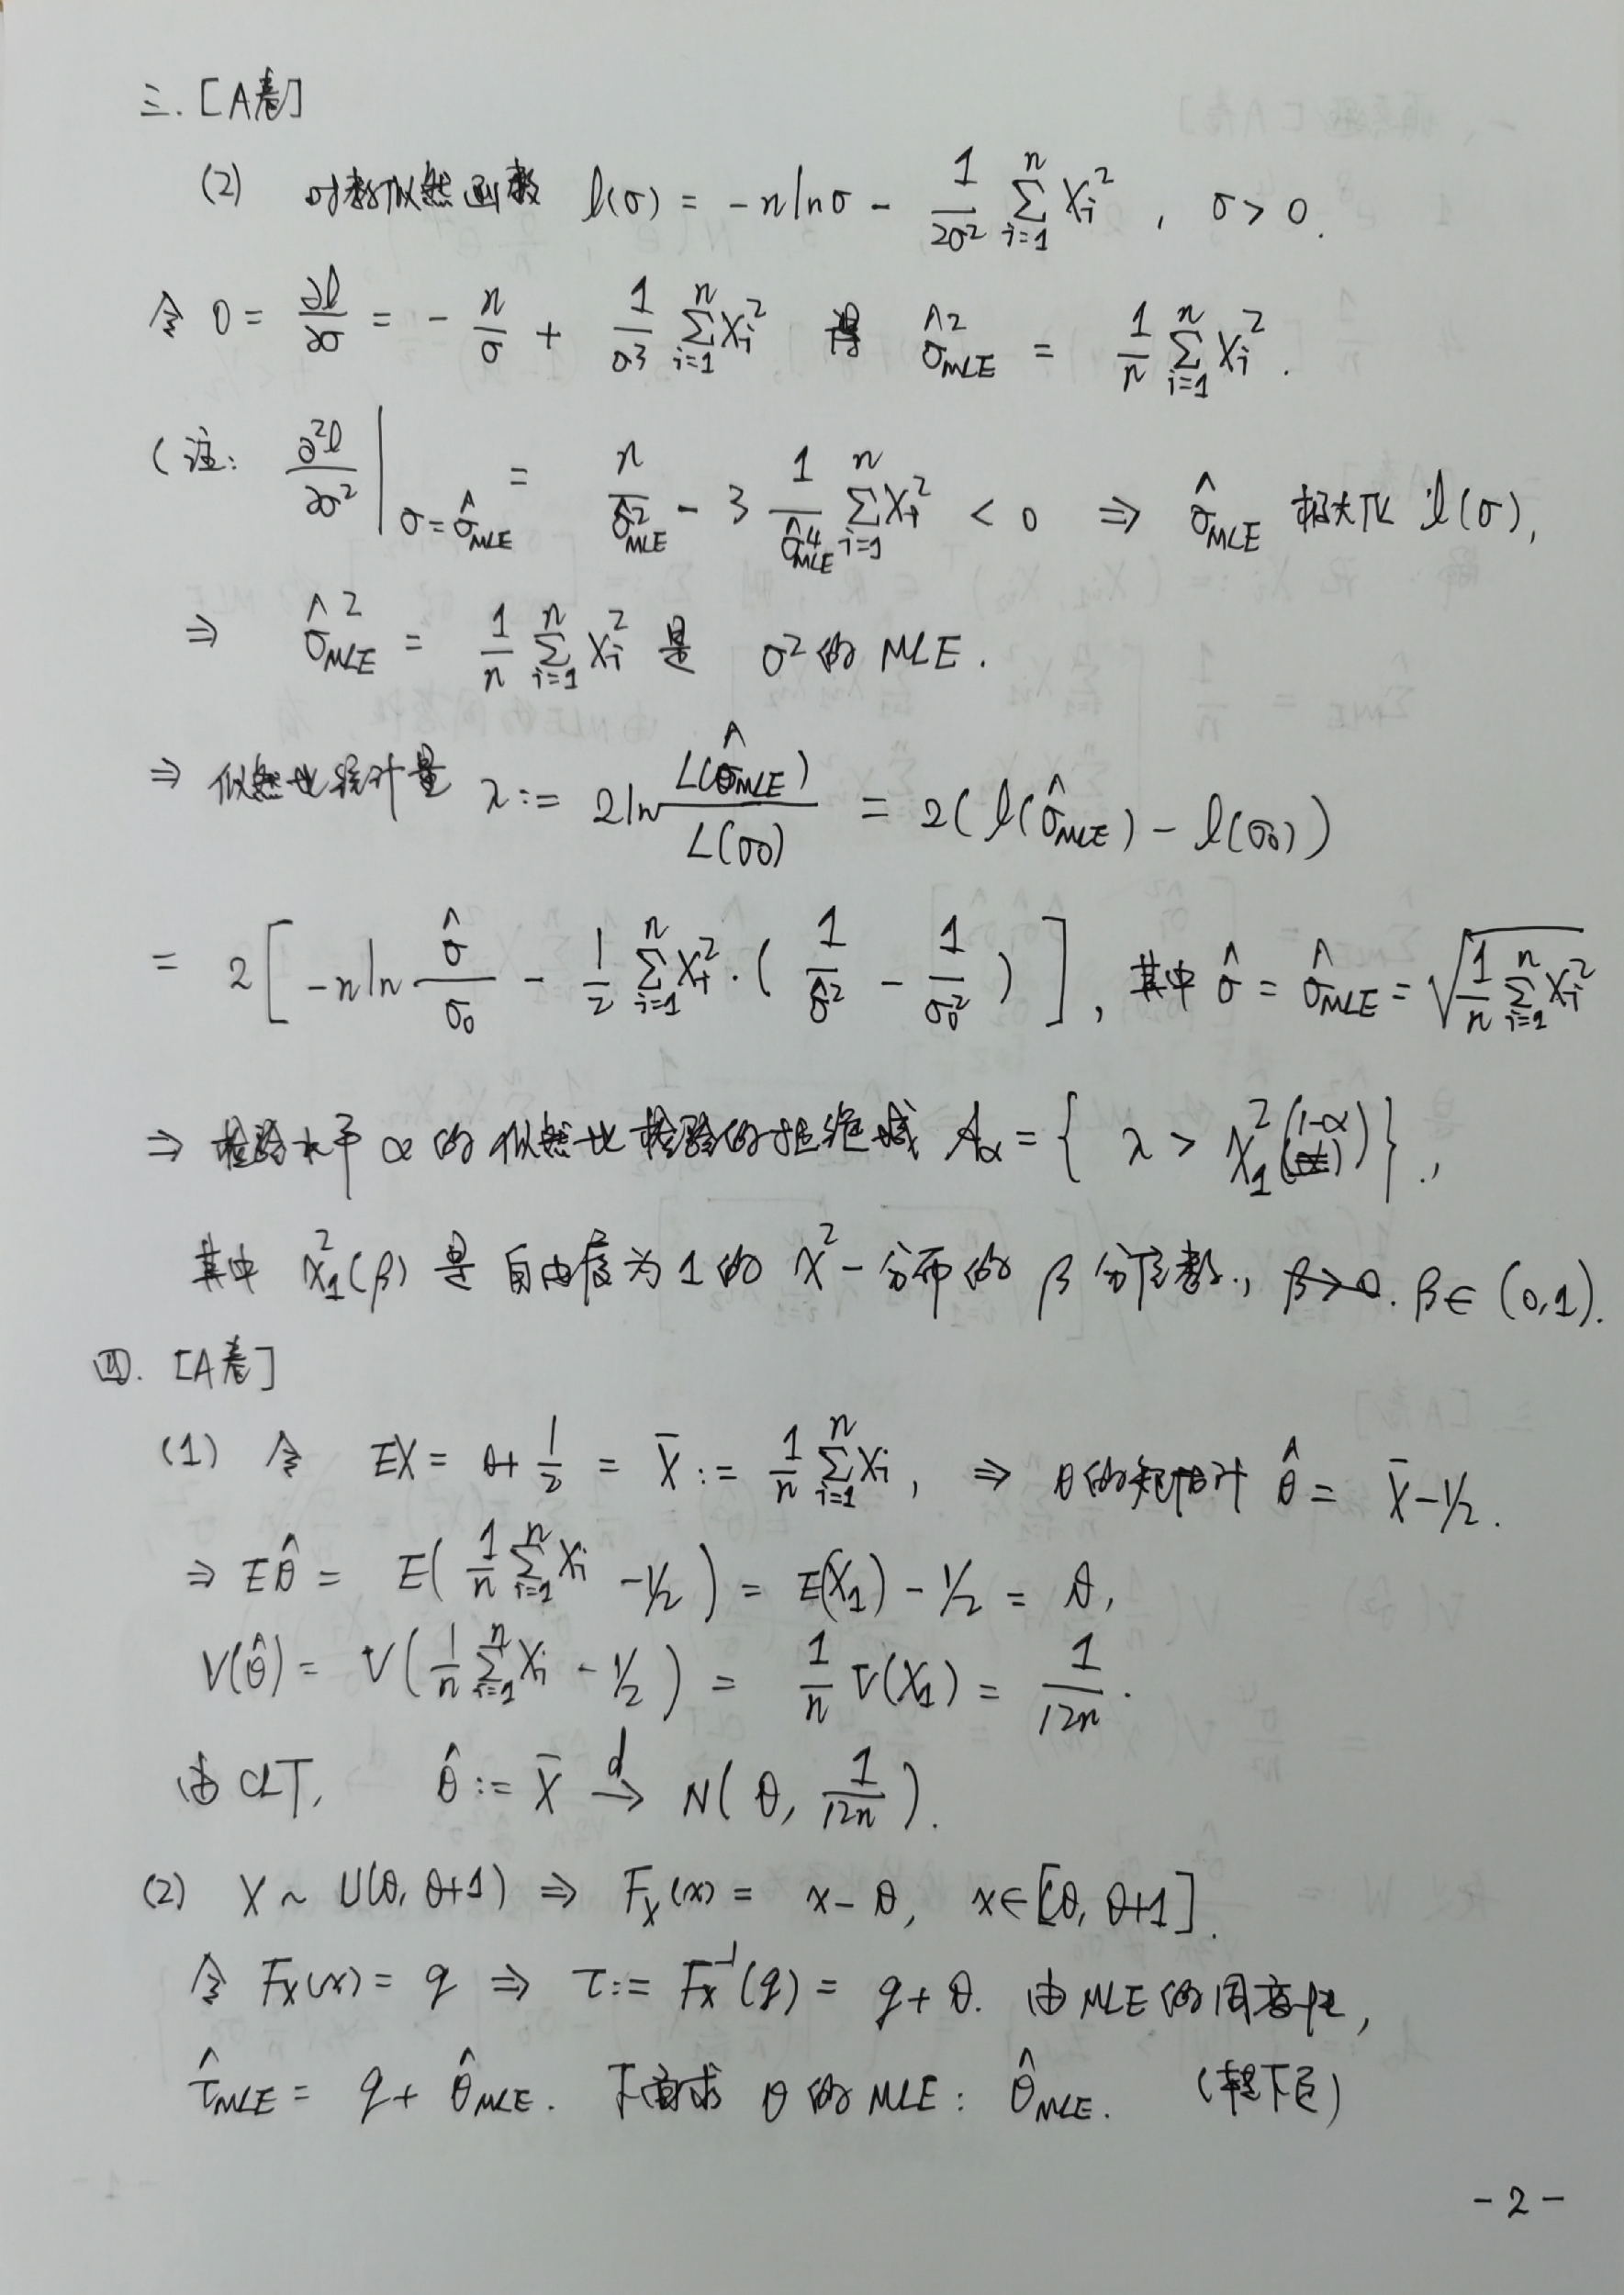 三. [A卷]
(2) 对数似然函数 l(σ) = -n ln σ - 1/(2σ²) Σ_{i=1}^n X_i² , σ > 0.
令 0 = ∂l/∂σ = - n/σ + 1/σ³ Σ_{i=1}^n X_i² 得 σ̂²_MLE = 1/n Σ_{i=1}^n X_i² .
(注: ∂²l/∂σ² |_{σ=σ̂_MLE} = n/σ̂²_MLE - 3 1/σ̂⁴_MLE Σ_{i=1}^n X_i² < 0 ⇒ σ̂_MLE 极大化 l(σ),
⇒ σ̂²_MLE = 1/n Σ_{i=1}^n X_i² 是 σ² 的 MLE .
⇒ 似然比统计量 λ := 2 ln L(σ̂_MLE)/L(σ₀) = 2( l(σ̂_MLE) - l(σ₀) )
= 2 [ -n ln σ̂/σ₀ - 1/2 Σ_{i=1}^n X_i² · ( 1/σ̂² - 1/σ₀² ) ] , 其中 σ̂ = σ̂_MLE = √(1/n Σ_{i=1}^n X_i²)
⇒ 检验水平 α 的似然比检验的拒绝域 A_α = { λ > χ²_1(1-α) } ,
其中 χ²_1(β) 是自由度为 1 的 χ² - 分布的 β 分位数, β>0. β ∈ (0,1).
四. [A卷]
(1) 令 EX = θ + 1/2 = X̄ := 1/n Σ_{i=1}^n X_i , ⇒ θ 的矩估计 θ̂ = X̄ - 1/2 .
⇒ Eθ̂ = E( 1/n Σ_{i=1}^n X_i - 1/2 ) = E(X_1) - 1/2 = θ,
V(θ̂) = V( 1/n Σ_{i=1}^n X_i - 1/2 ) = 1/n V(X_1) = 1/(12n) .
由 CLT, θ̂ := X̄ →^d N( θ, 1/(12n) ) .
(2) X ~ U(θ, θ+1) ⇒ F_X(x) = x - θ, x ∈ [θ, θ+1] .
令 F_X(x) = q ⇒ τ := F_X^{-1}(q) = q + θ. 由 MLE 的同变性,
τ̂_MLE = q + θ̂_MLE . 下面求 θ 的 MLE : θ̂_MLE . (转下页)
- 2 -